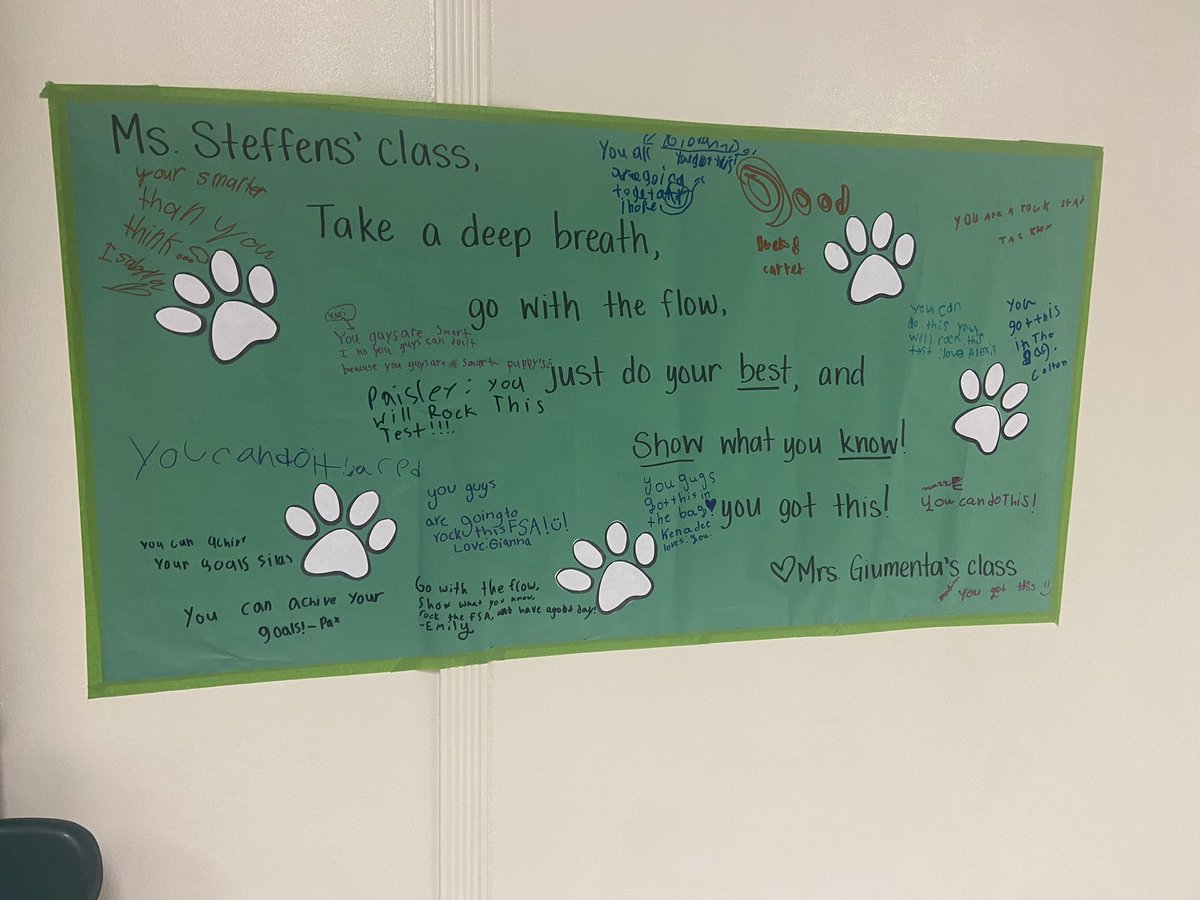 Ms. Steffens' class,
your smarter
than you
think...
Isabella
You all
you got this!
are going
to get an
I hope
Good
luck!
carter
You are a rock star
Take a deep breath,
go with the flow,
Kari
You guys are smart
I no you guys can do it
because you guys are a smart puppy's
Paisley: you
will Rock This
Test!!!
just do your best, and
You can
do this you
will rock this
test :love Alexis
You
got this
in The
Colton
Show what you know!
You can do it
you guys
are going to
rock this FSA!!
Love: Gianna
You guys
got this in
the bag!
Kenadee
loves: you.
you got this!
You can do This!
You can achive
your goals silas
You can achive your
goals! - Pax
Go with the flow,
Show what you know,
rock the FSA, and have a good day!
-Emily
♡Mrs. Giumenta's class
You got this :)